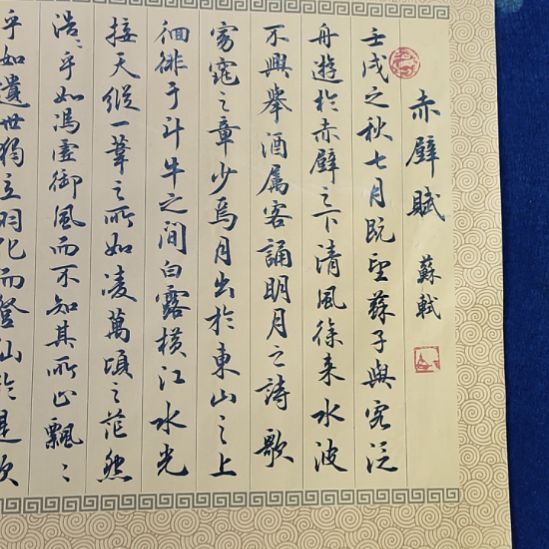 赤壁賦 蘇軾
壬戌之秋七月既望蘇子與客泛
舟遊於赤壁之下清風徐來水波
不興舉酒属客誦明月之詩歌
窈窕之章少焉月出於東山之上
徊徘于斗牛之間白露横江水光
接天縱一葦之所如凌萬頃之茫然
浩〻乎如馮虛御風而不知其所止飄〻
乎如遺世獨立羽化而登仙於是飲